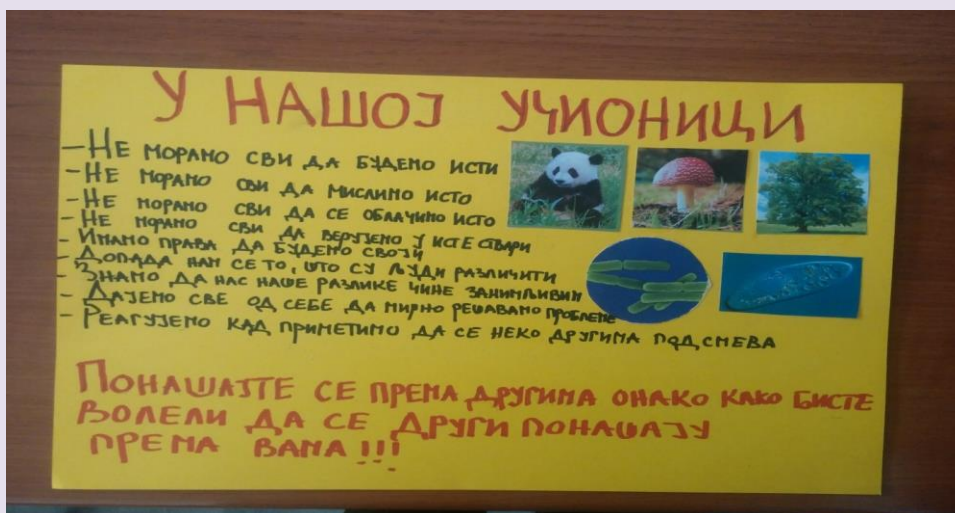 У НАШОЈ УЧИОНИЦИ
- НЕ МОРАМО СВИ ДА БУДЕМО ИСТИ
- НЕ МОРАМО СВИ ДА МИСЛИМО ИСТО
- НЕ МОРАМО СВИ ДА СЕ ОБЛАЧИМО ИСТО
- НЕ МОРАМО СВИ ДА ВЕРУЈЕМО У ИСТЕ СТВАРИ
- ИМАМО ПРАВА ДА БУДЕМО СВОЈИ
- ДОПАДА НАМ СЕ ТО, ШТО СУ ЉУДИ РАЗЛИЧИТИ
- ЗНАМО ДА НАС НАШЕ РАЗЛИКЕ ЧИНЕ ЗАНИМЉИВИМ
- ДАЈЕМО СВЕ ОД СЕБЕ ДА МИРНО РЕШАВАМО ПРОБЛЕМЕ
- РЕАГУЈЕМО КАД ПРИМЕТИМО ДА СЕ НЕКО ДРУГИМА ПОДСМЕВА
ПОНАШАЈТЕ СЕ ПРЕМА ДРУГИМА ОНАКО КАКО БИСТЕ
ВОЛЕЛИ ДА СЕ ДРУГИ ПОНАШАЈУ
ПРЕМА ВАМА !!!